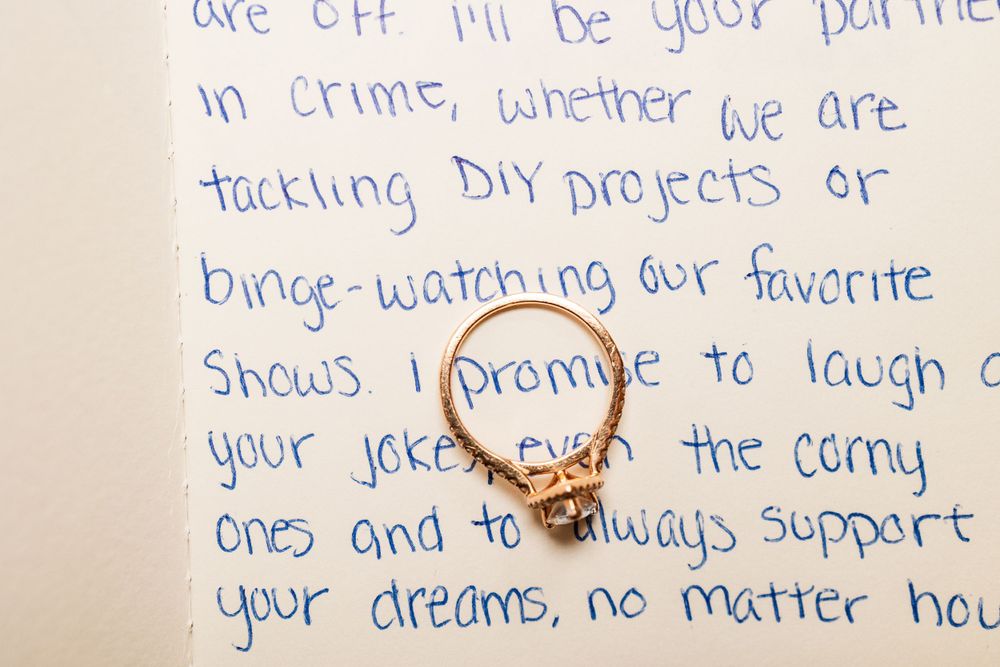 are off. I'll be your partne
in crime, whether we are
tackling DIY projects or
binge-watching our favorite
shows. I promise to laugh
your jokes, even the corny
ones and to always support
your dreams, no matter how